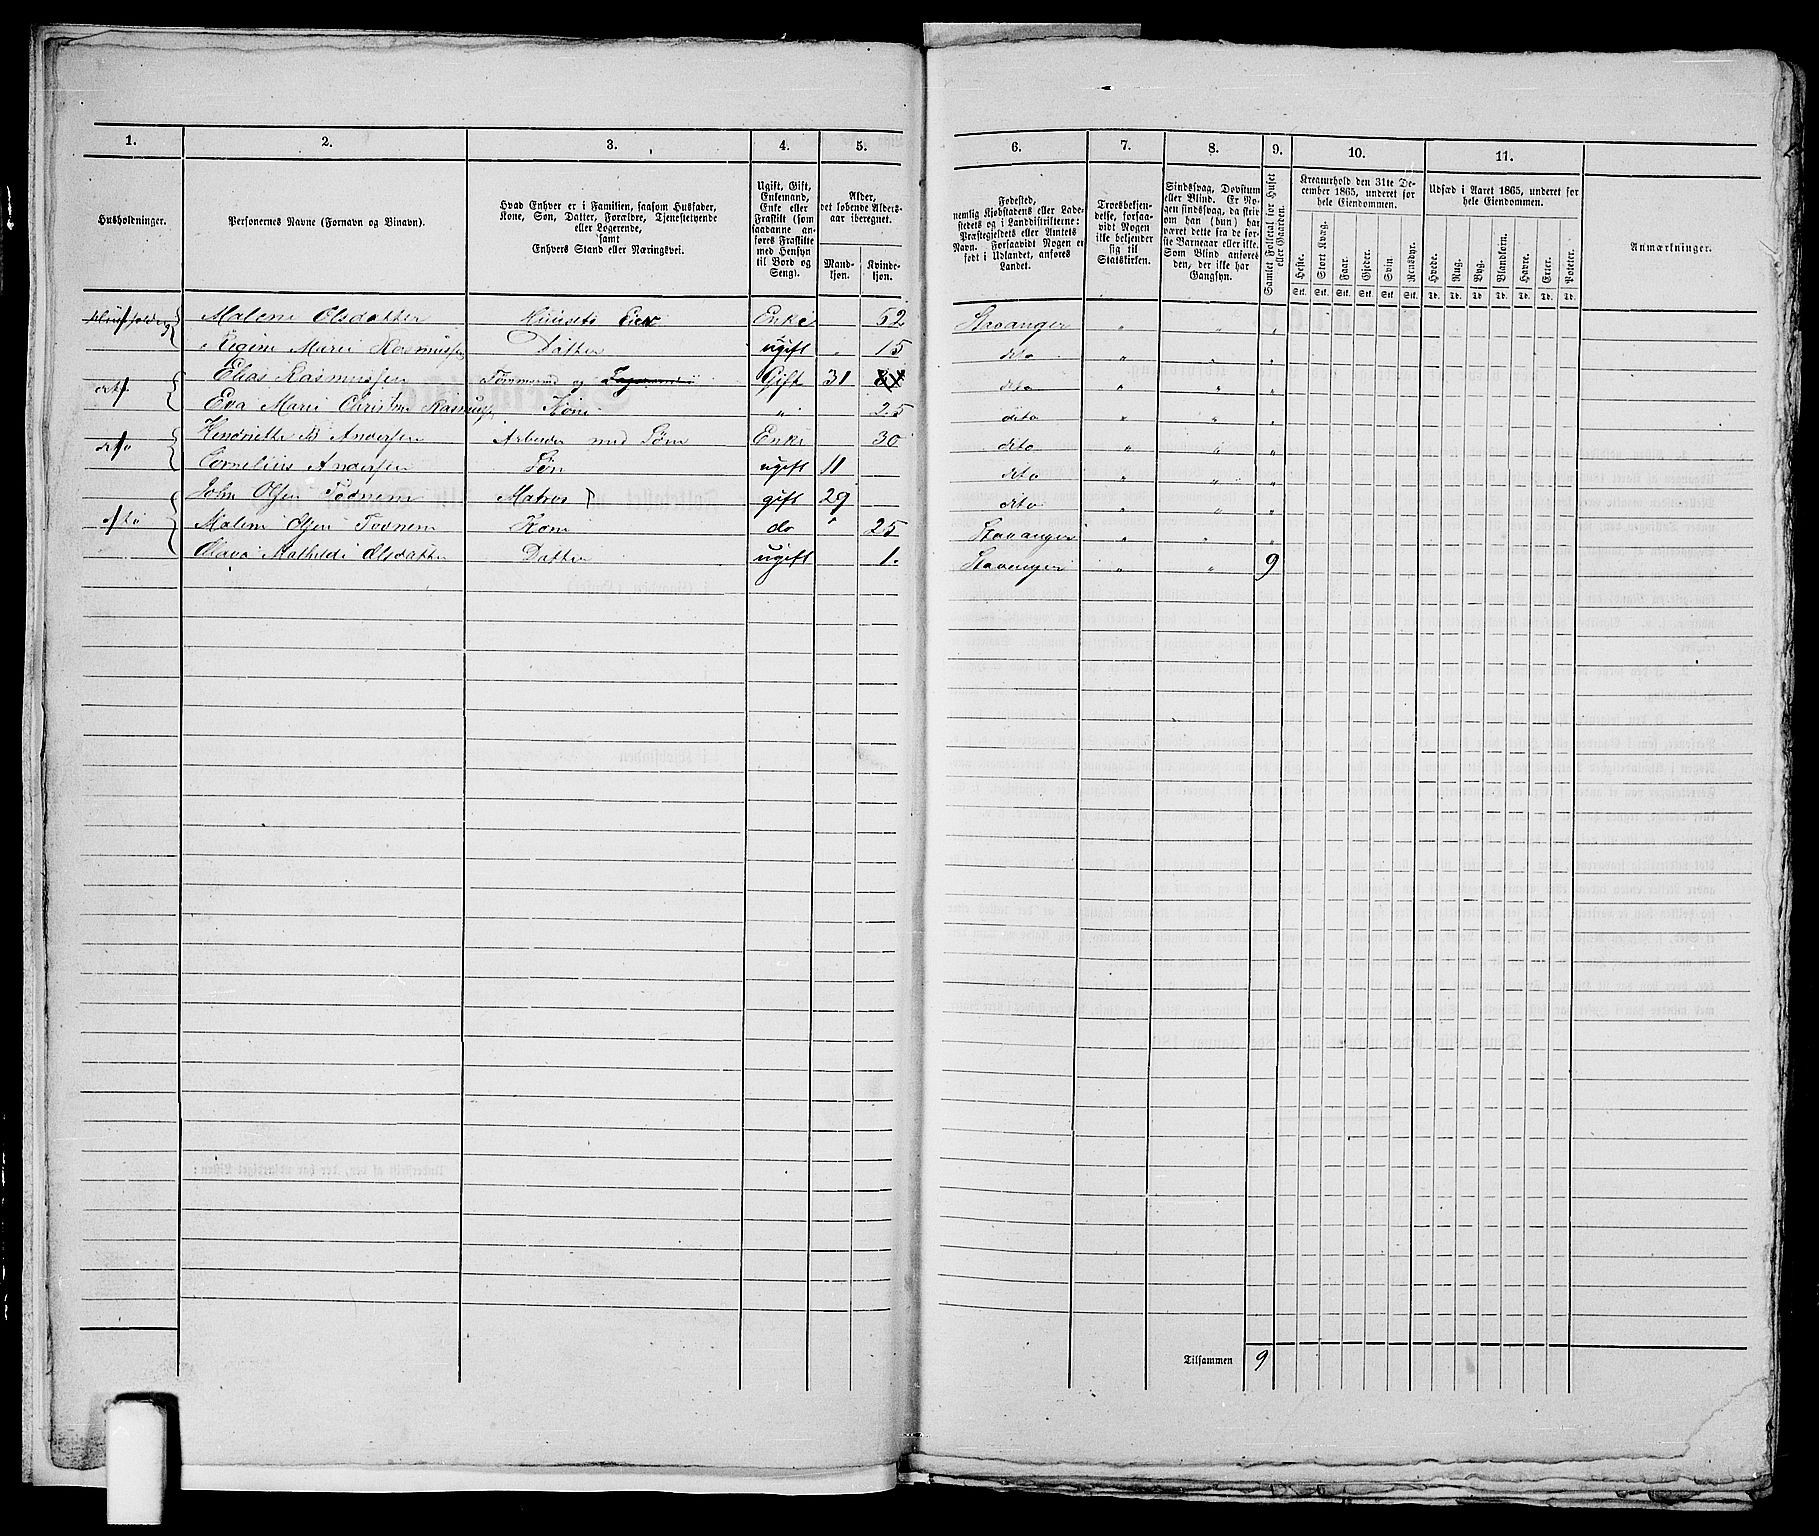 1. 2. 3. 4. 5. 6. 7. 8. 9. 10. 11.
Husholdninger.
Personernes Navne (Fornavn og Binavn).
Hvad Enhver er i Familien, saasom Husfader,
Kone, Søn, Datter, Forældre, Tjenestetyende
eller Logerende,
samt
Enhvers Stand eller Næringsvei.
Ugift, Gift,
Enkemand,
Enke eller
Fraskilt (som
saadanne an-
føres Fraskilte
med Hensyn
til Bord og
Seng).
Alder,
det løbende Alders-
aar iberegnet.
Mand-
kjøn.
Kvinde-
kjøn.
Fødested,
nemlig Kjøbstadens eller Lade-
stedets og i Landdistrikterne:
Præstegjeldets eller Amtets
Navn. Forsaavidt Nogen er
født i Udlandet, anføres
Landet.
Troesbekjen-
delse, forsaa-
vidt Nogen
ikke bekjender
sig til
Statskirken.
Sindssvag, Døvstum
eller Blind. Er No-
gen sindssvag, da skri-
ves om han (hun) har
været dette fra de før-
ste Barneaar eller ikke.
Som Blind anføres
den, der ikke har
Gangsyn.
Samlet Folketal for Huset
eller Gaarden.
Kreaturhold den 31te De-
cember 1865, underet for
hele Eiendommen.
Heste. Stort Kvæg. Faar. Gjeder. Svin. Rensdyr.
Stk. Stk. Stk. Stk. Stk. Stk.
Udsæd i Aaret 1865, underet for
hele Eiendommen.
Hvede. Rug. Byg. Blandkorn. Havre. Erter. Poteter.
Td. Td. Td. Td. Td. Td. Td.
Anmærkninger.
Malene Olsdatter Huusets Eier Enke 62 Stavanger " " "
Regine Marie Rasmussen Datter ugift " 15 dito " " "
dto Elias Rasmussen Tømmermd og Gift 31 dito " " "
Eva Marie Christine Rasmussen Kone " 25 dito " " "
dito Hendriette B Andersen Arbeider med Søm Enke 30 dito " " "
Cornelius Andersen Søn ugift 11 dito " " "
John Olsen Todnem Matros gift 29 dito " " "
dto Malene Olsen Todnem Kone do " 25 Stavanger " " "
Olava Mathilde Olsdatter Datter ugift 1. Stavanger " " 9
Tilsammen 9